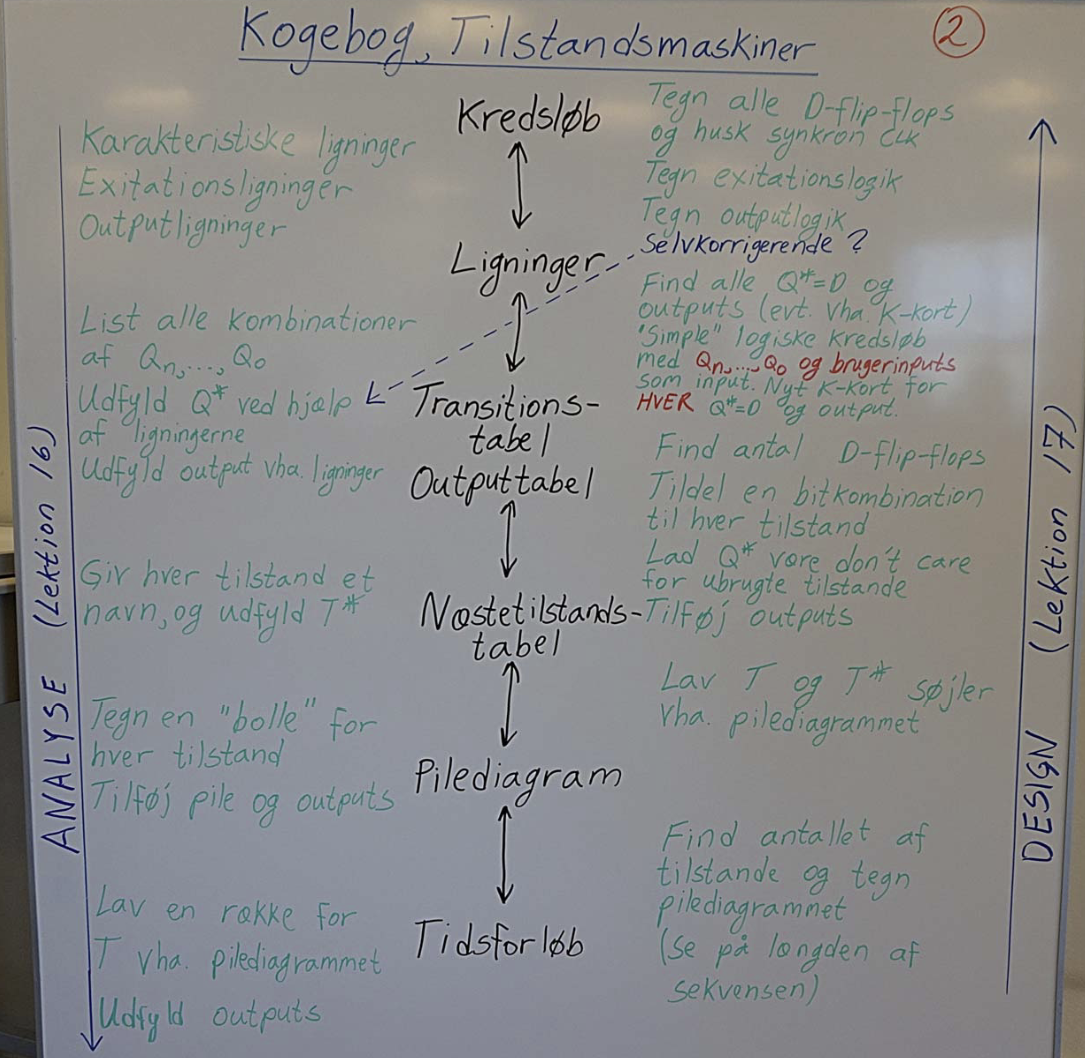 Kogebog, Tilstandsmaskiner
2
ANALYSE (Lektion 16)
Karakteristiske ligninger
Exitationsligninger
Outputligninger
List alle kombinationer
af Qn,...,Q0
Udfyld Q* ved hjælp
af ligningerne
Udfyld output vha. ligninger
Giv hver tilstand et
navn, og udfyld T*
Tegn en "bolle" for
hver tilstand
Tilføj pile og outputs
Lav en række for
T vha. pilediagrammet
Udfyld outputs
Kredsløb
Ligninger
Transitions-
tabel
Outputtabel
Næstetilstands-
tabel
Pilediagram
Tidsforløb
Tegn alle D-flip-flops
og husk synkron CLK
Tegn exitationslogik
Tegn outputlogik
Selvkorrigerende?
Find alle Q*=D og
outputs (evt. vha. K-kort)
"Simple" logiske kredsløb
med Qn,...,Q0 og brugerinputs
som input. Nyt K-kort for
HVER Q*=D og output.
Find antal D-flip-flops
Tildel en bitkombination
til hver tilstand
Lad Q* være don't care
for ubrugte tilstande
Tilføj outputs
Lav T og T* søjler
vha. pilediagrammet
Find antallet af
tilstande og tegn
pilediagrammet
(Se på længden af
sekvensen)
DESIGN (Lektion 17)